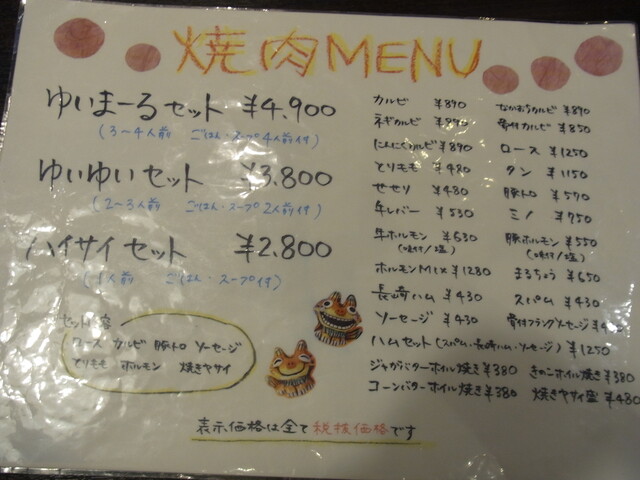 焼肉MENU
ゆいまーるセット ¥4,900
(3~4人前 ごはん・スープ4人前付)
ゆいゆいセット ¥3.800
(2~3人前 ごはん・スープ2人前付)
ハイサイセット ¥2.800
(1人前 ごはん・スープ付)
セット内容
ロース カルビ 豚トロ ソーセージ
とりもも ホルモン 焼きヤサイ
カルビ ¥890
ネギカルビ ¥890
にんにくカルビ ¥890
とりもも ¥480
せせり ¥480
牛レバー ¥530
牛ホルモン ¥630
(味付/塩)
ホルモンMIX ¥1280
長崎ハム ¥430
ソーセージ ¥430
ハムセット(スパム・長崎ハム・ソーセージ) ¥1250
ジャガバターホイル焼き ¥380
コーンバターホイル焼き ¥380
なかおちカルビ ¥890
骨付カルビ ¥850
ロース ¥1250
タン ¥1150
豚トロ ¥590
ミノ ¥750
豚ホルモン ¥550
(味付/塩)
まるちょう ¥650
スパム ¥430
骨付フランクソーセージ
きのこホイル焼き ¥380
焼きヤサイ盛 ¥480
表示価格は全て税抜価格です